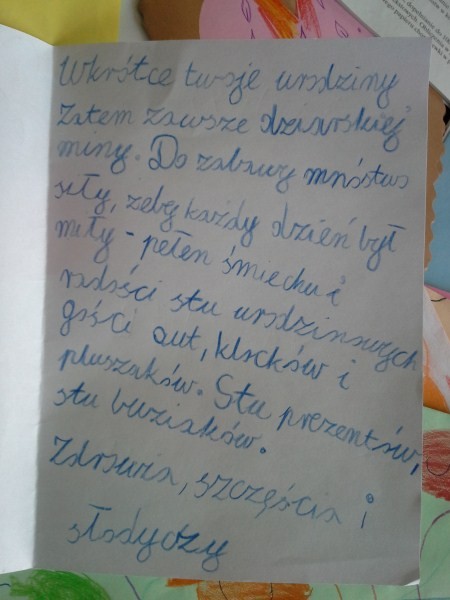 Wkrótce twoje urodziny
Zatem zawsze dziarskiej
miny. Do zabawy mnóstwo
siły, żeby każdy dzień był
miły - pełen śmiechu i
radości stu urodzinowych
gości aut, klocków i
pluszaków. Stu prezentów,
stu buziaków.
Zdrowia, szczęścia i
słodyczy